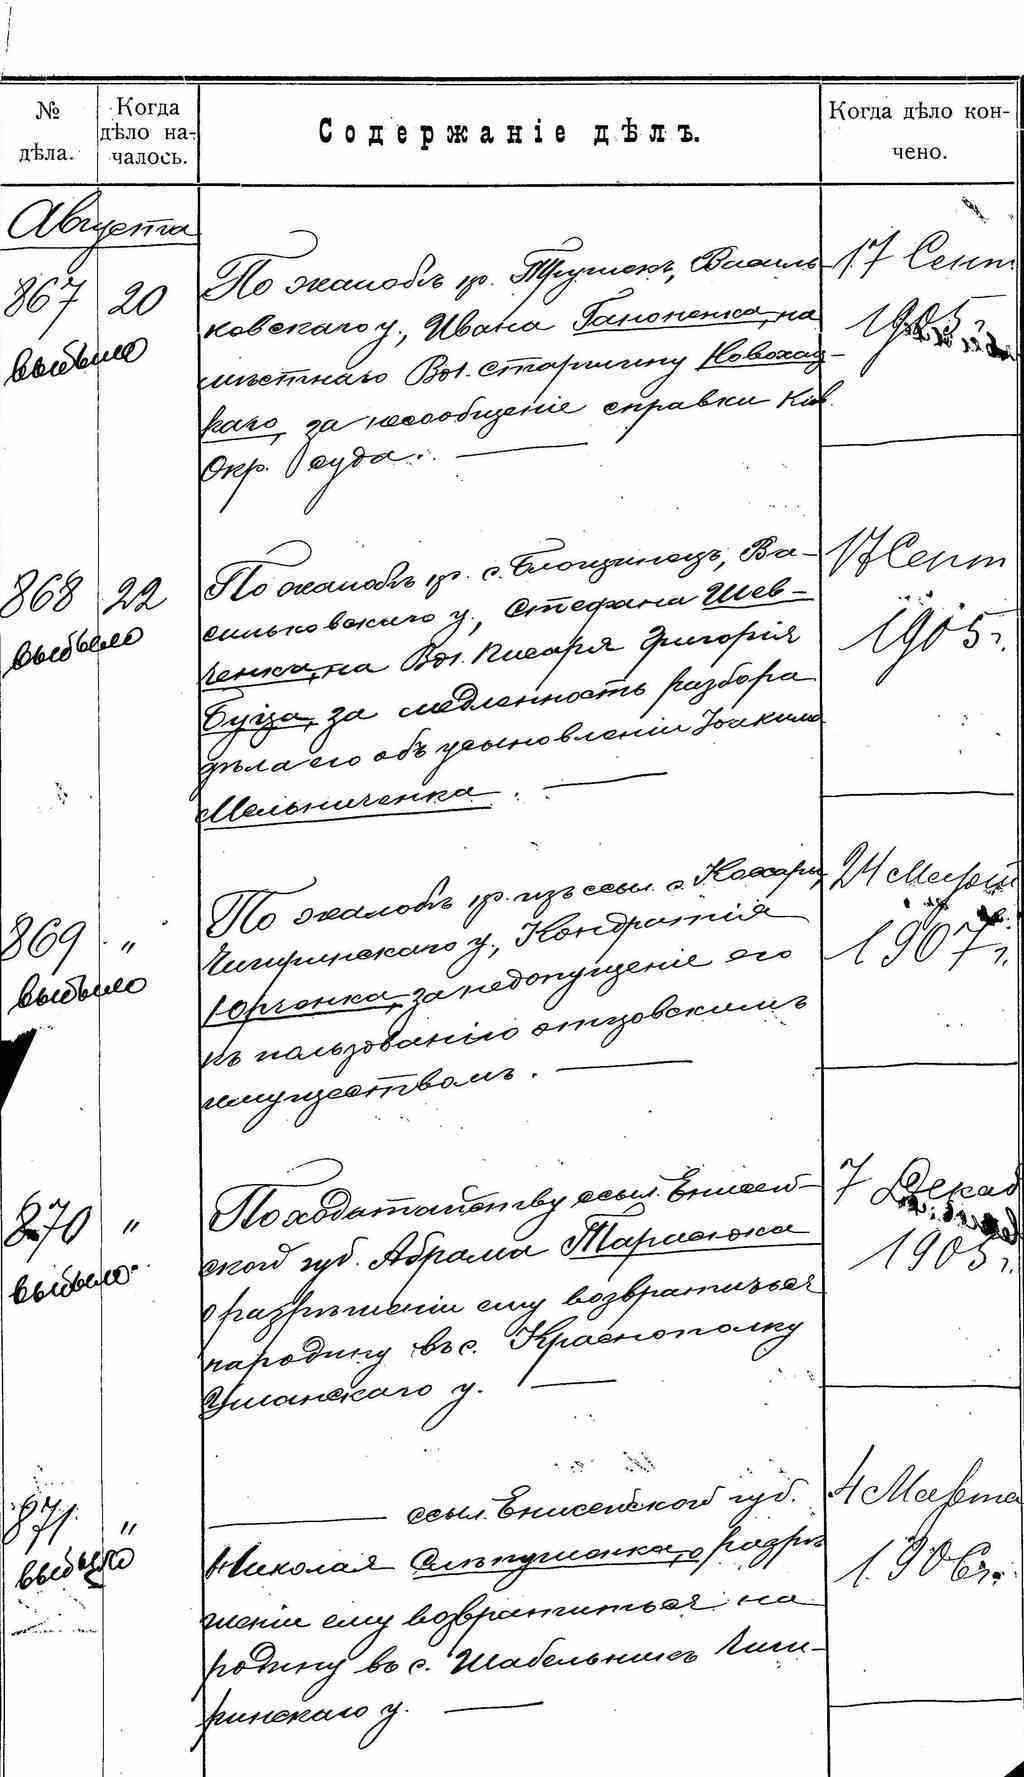 № дѣла.
Когда дѣло на-
чалось.
Содержаніе дѣлъ.
Когда дѣло кон-
чено.
Августа
867 20
выбыло
По жалобѣ кр. Трушокъ, Василь-
ковскаго у., Ивана Гапоненка, на
мѣстнаго Вол. старшину Новохац-
каго, за несообщеніе справки Кіев.
Окр. суда.
17 Сент
1905 г.
868 22
выбыло
По жалобѣ кр. с. Блощинецъ, Ва-
сильковскаго у., Стефана Шев-
ченка, на Вол. писаря Григорія
за медленность разбора
дѣла его объ усыновленіи Іоакима
Мельниченка.
17 Сент
1905 г.
869 "
выбыло
По жалобѣ кр. изъ ссыл. с.
Чигиринскаго у., Кондратія
Юрченка, за недопущеніе его
къ пользованію отцовскимъ
имуществомъ.
24 Март
1907 г.
870 "
выбыло
По ходатайству ссыл. Енисей-
ской губ. Абрама Тарасюка
о разрѣшеніи ему возвратиться
на родину въ с. Краснополку
Уманскаго у.
7 Декаб
1905 г.
871 "
выбыло
ссыл. Енисейской губ.
Николая Слѣпушенка, о разрѣ
шеніи ему возвратиться на
родину въ с. Шабельникъ Чиги-
ринскаго у.
4 Марта
1906 г.